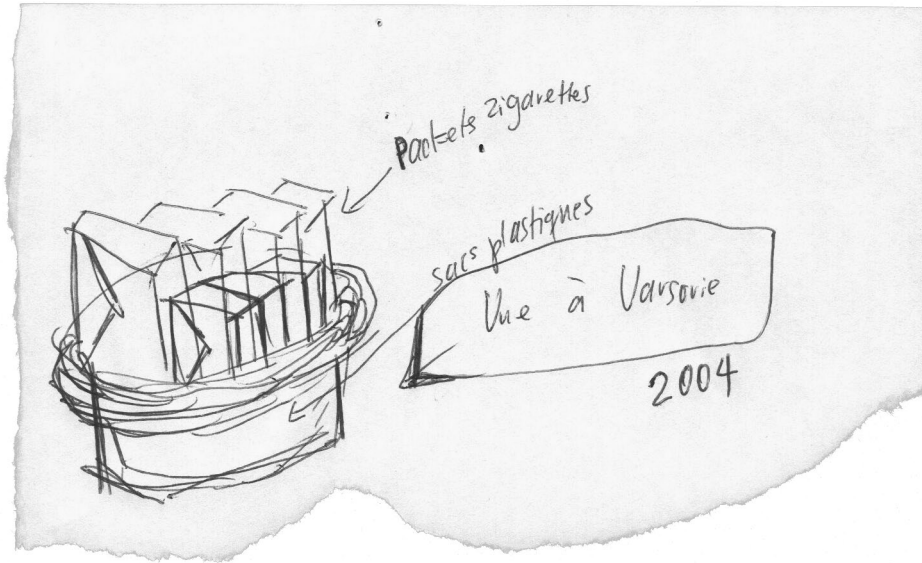 Packets zigarettes
sacs plastiques
Vue à Varsovie
2004